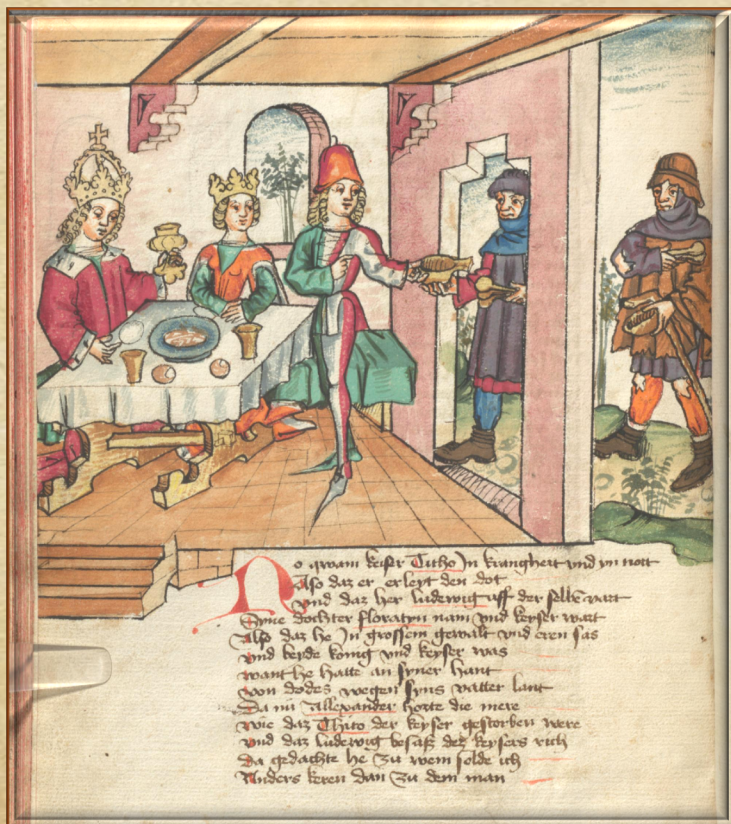 Do qwam keiser Titho In krangheit vnd yn nott
Also daz er erleyt den dot
Vnd daz her ludewig uff der selbē vart
Syne dochter floratyn nam vnd keyser wart
Also daz he In grossem gewalt vnd eren sas
Vnd beyde konig vnd keyser was
Want he hatte an syner hant
Von dodes wegen syns vatter lant
Da nū Allexander horte die mere
Wie daz Thito der keyser gestorben were
Vnd daz ludewig besasz des keysers rich
Da gedachte he zu wem solde ich
Anders keren dan zu dem man